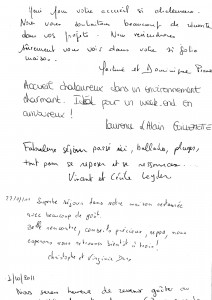 pour votre accueil si chaleureux.
Nous vous souhaitons beaucoup de réussite
dans vos projets. Nous reviendrons
sûrement vous voir dans votre si jolie
maison.
et Dominique
Accueil chaleureux dans un environnement
charmant. Idéal pour un week end en
amoureux !
Laurence & Alain
séjour passé ici, ballades, plages,
tout pour se reposer et se ressourcer...
Vincent et Cécile
Superbe séjour dans votre maison restaurée
avec beaucoup de goût.
Belle rencontre, conseils précieux, repos, nous
espérons nous retrouver bientôt à
Christophe et Virginie
2011
Nous avons heureux de revenir goûter au